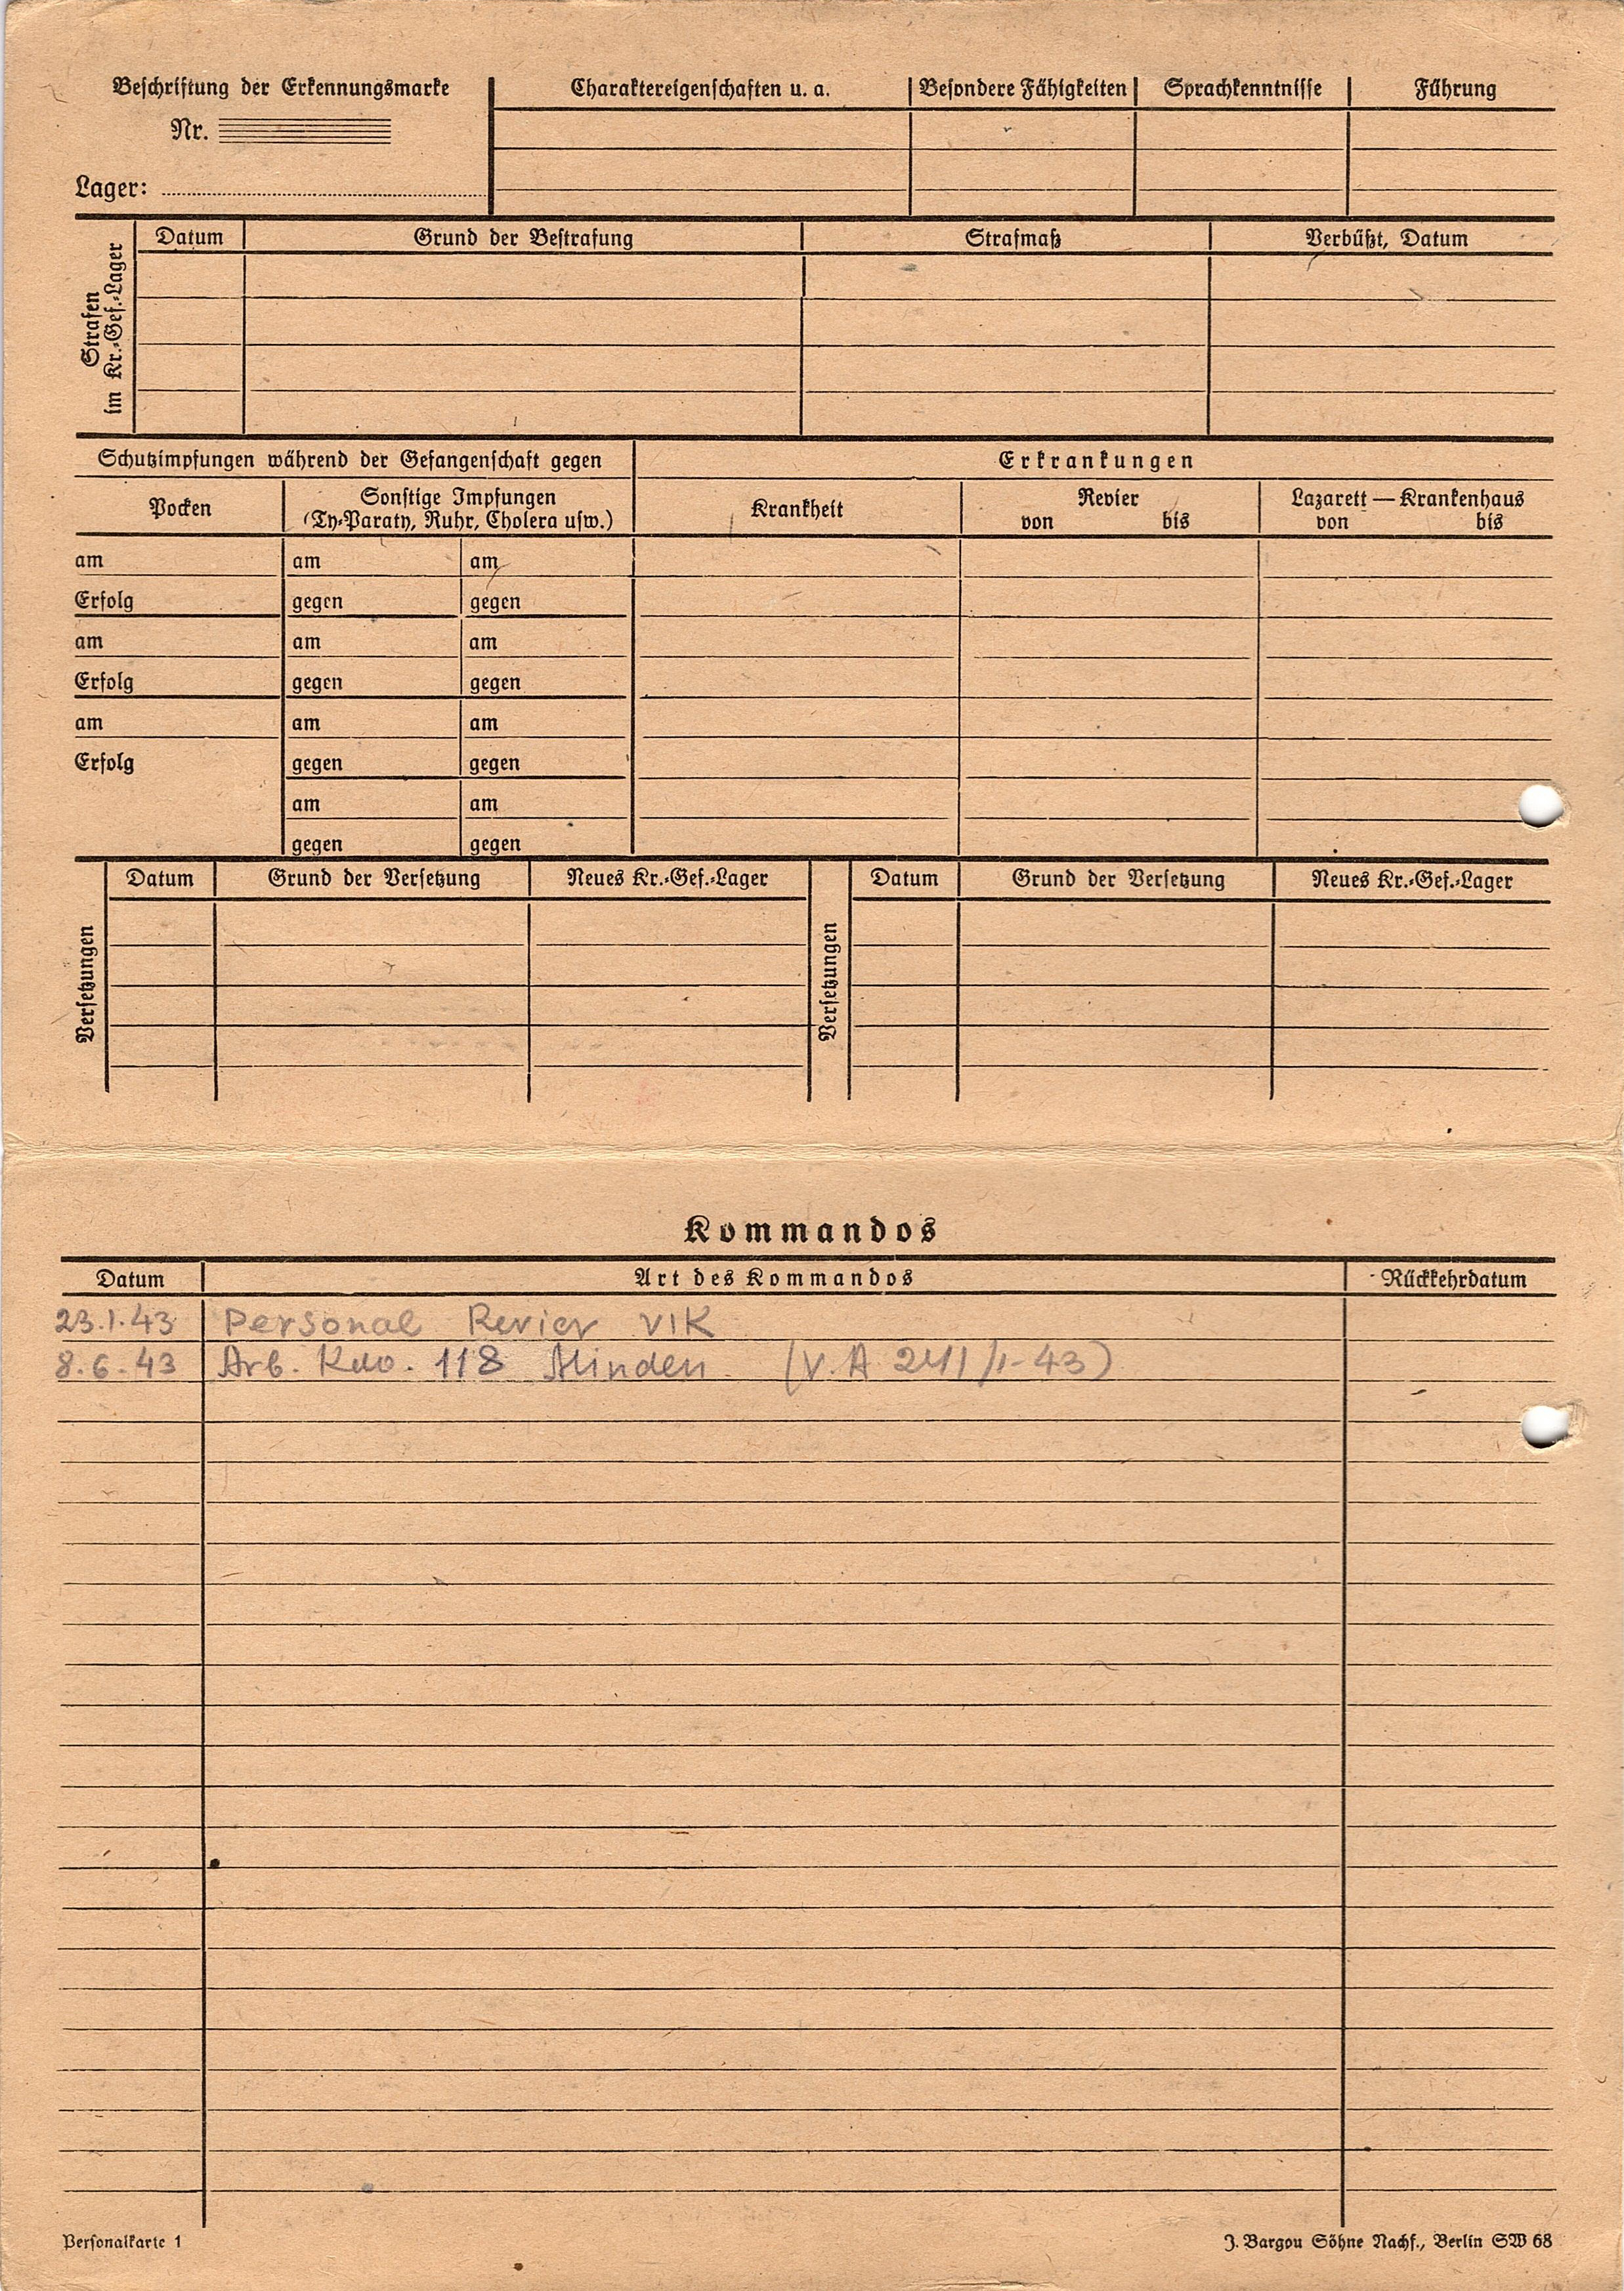 Beschriftung der Erkennungsmarke
Nr.
Lager:
Charaktereigenschaften u. a. Besondere Fähigkeiten Sprachkenntnisse Führung
Strafen
im Kr.-Gef.-Lager
Datum Grund der Bestrafung Strafmaß Verbüßt, Datum
Schutzimpfungen während der Gefangenschaft gegen
Erkrankungen
Pocken
Sonstige Impfungen
(Ty-Paraty, Ruhr, Cholera usw.)
Krankheit
Revier
von bis
Lazarett — Krankenhaus
von bis
am am am
Erfolg gegen gegen
am am am
Erfolg gegen gegen
am am am
Erfolg gegen gegen
am am
gegen gegen
Versetzungen
Datum Grund der Versetzung Neues Kr.-Gef.-Lager
Versetzungen
Datum Grund der Versetzung Neues Kr.-Gef.-Lager
Kommandos
Datum Art des Kommandos Rückkehrdatum
23.1.43 Personal Revier VIK
8.6.43 Arb. Kdo. 118 Minden (V.A 241/1-43)
Personalkarte 1
J. Bargou Söhne Nachf., Berlin SW 68